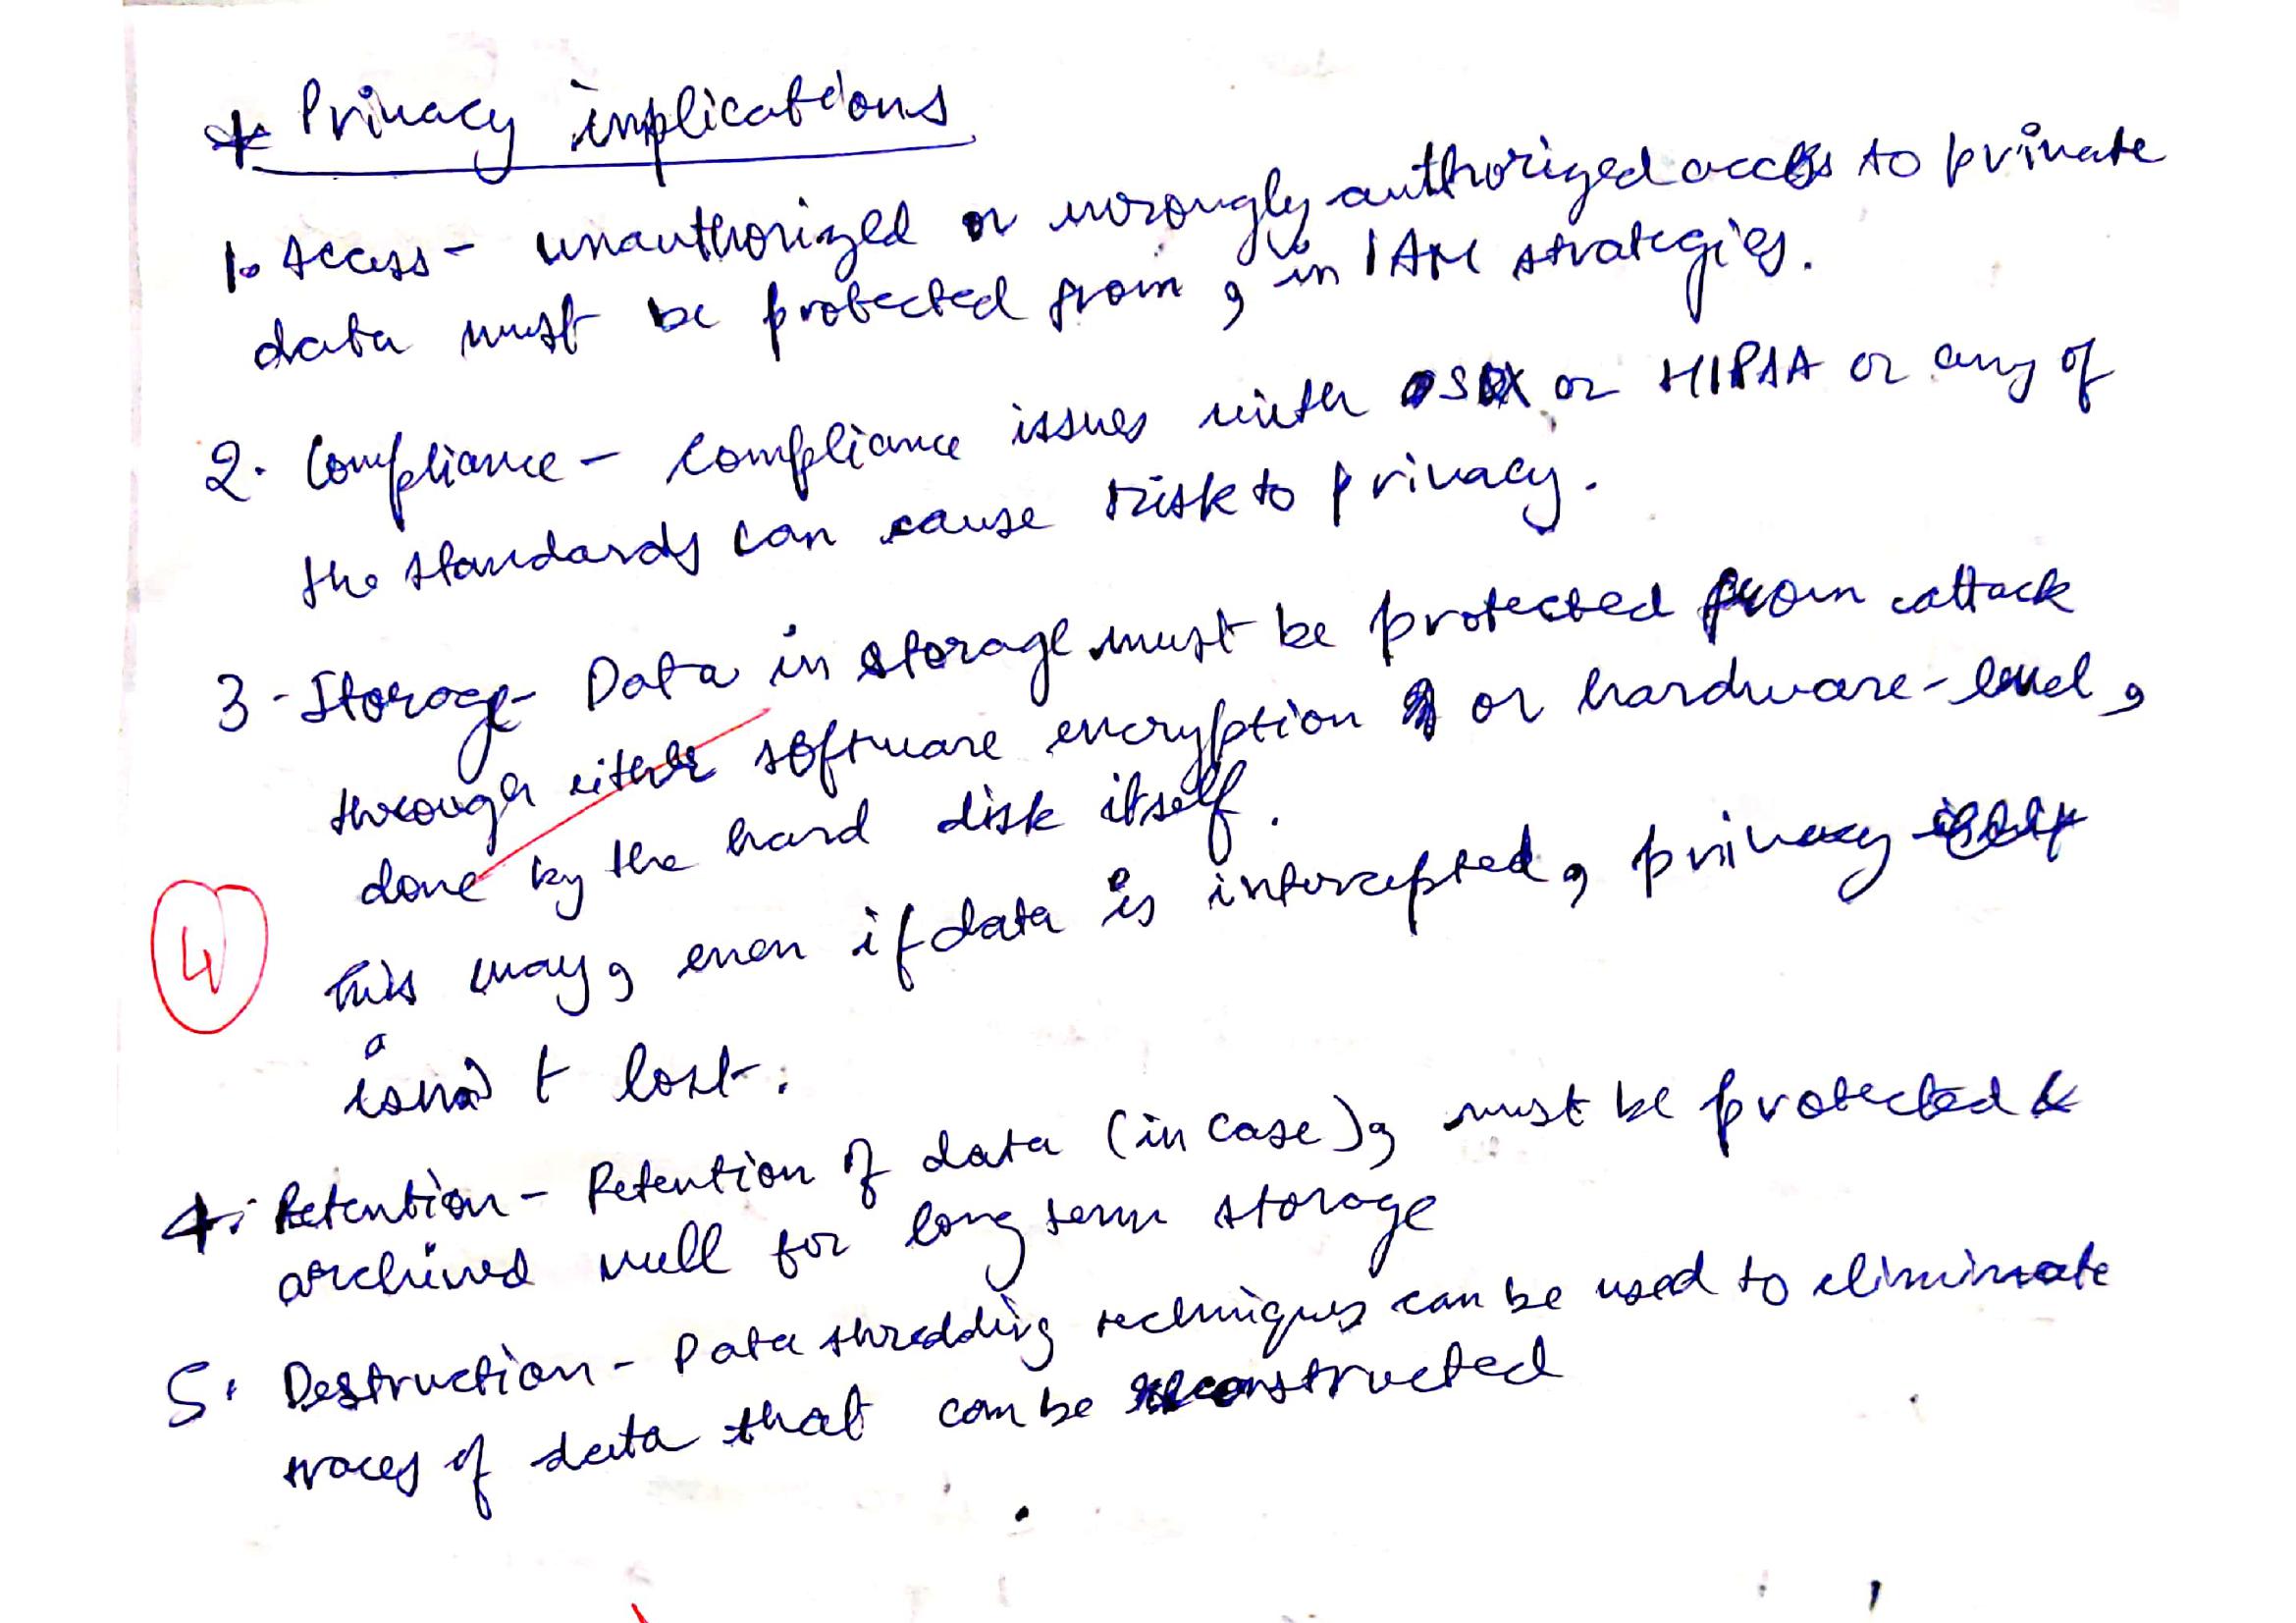 * Privacy implications
1. Access - unauthorized or wrongly authorized access to private
data must be protected from, in IAM strategies.
2. Compliance - compliance issues with SOX or HIPAA or any of
the standards can cause risk to privacy.
3 - Storage - Data in storage must be protected from attack
through either software encryption or hardware-level,
done by the hard disk itself.
4
This way, even if data is intercepted, privacy
isn't lost.
4. Retention - Retention of data (in case), must be protected &
archived well for long term storage
5. Destruction - Data shredding techniques can be used to eliminate
traces of data that can be reconstructed